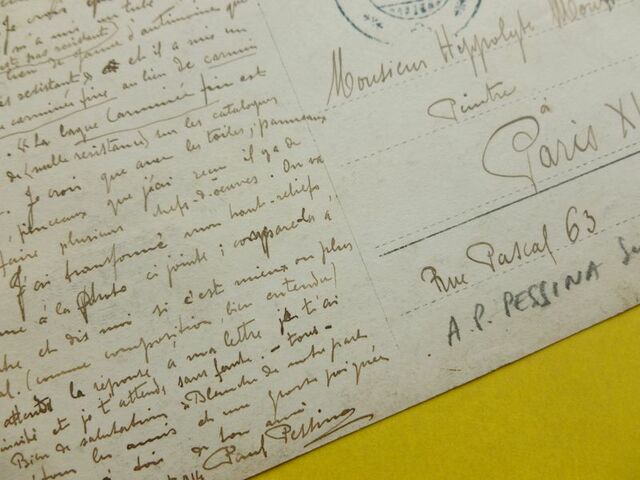 Je crois que
m'a mis un tube
pas résistant
de jaune d'antimoine que
résistant et il a mis un
carminée fine au lieu de carmin
"La laque Carminée fine est
de (nulle résistance) sur les catalogues
Je crois que avec les toiles, panneaux
pinceaux que j'ai reçu il y a de
faire plusieurs chefs-d'oeuvres. On va
J'ai transformé mon haut-reliefs
à la photo ci jointe ; compares la
et dis moi si c'est mieux ou plus
(comme composition, bien entendu)
attends la réponse a ma lettre je t'ai
invité et je t'attends, sans faute. - tous
Bien de salutations à Blanche de notre part
tous les amis et une grosse poignée
de ton ami
Paul Pessina
Monsieur Hyppolyte
Peintre
à
Paris
Rue Pascal 63
A. P. PESSINA